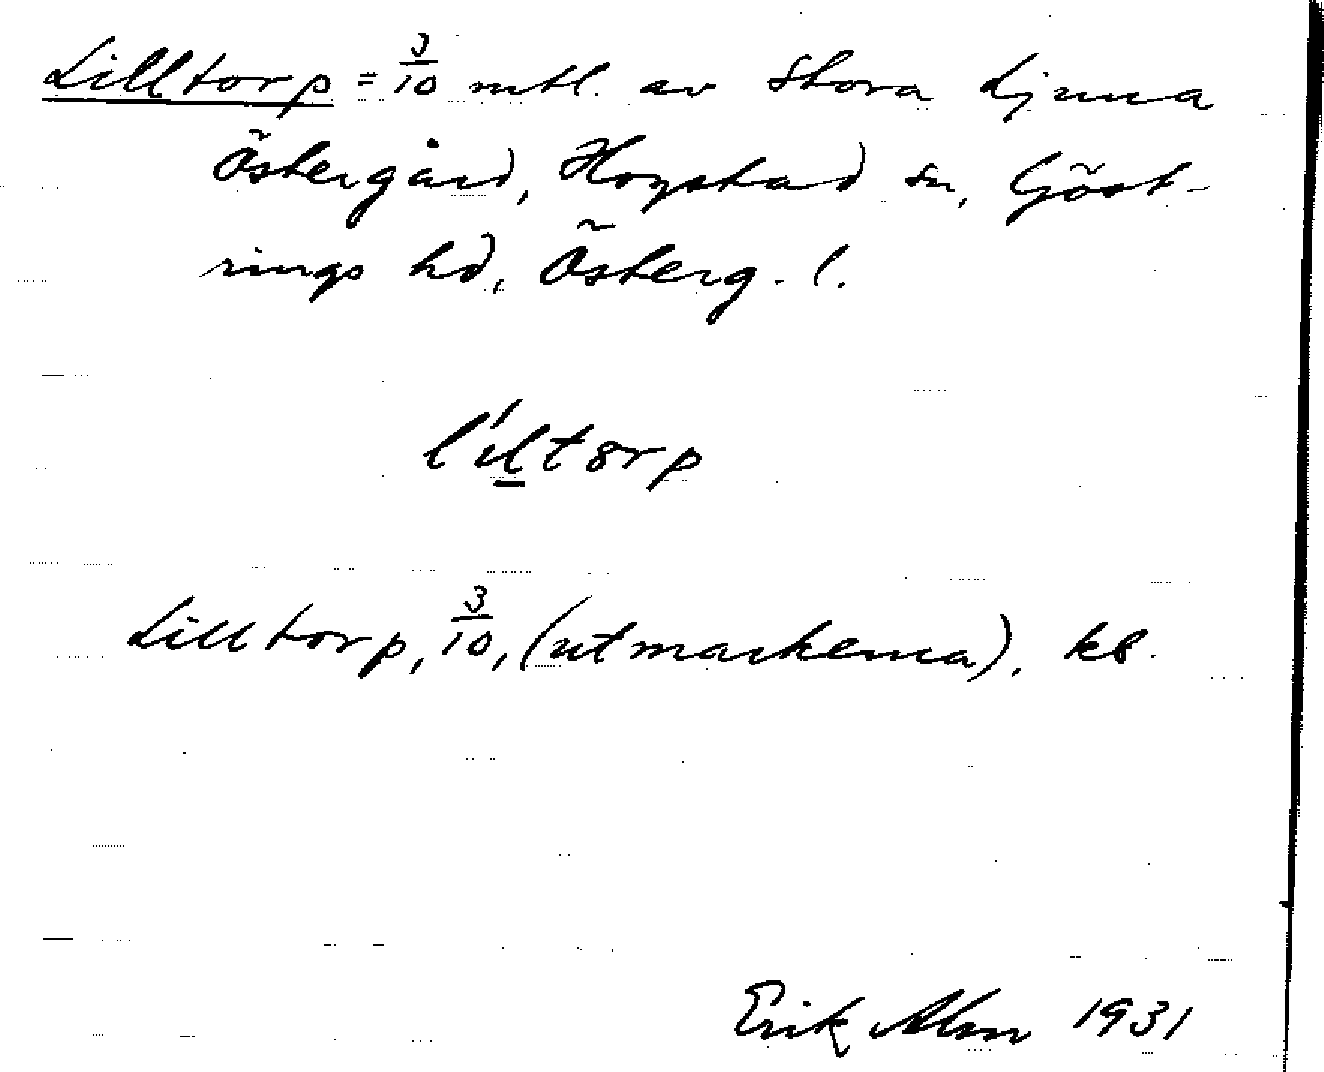 Lilltorp = 3/10 mtl. av Stora Ljuna
Östergård, Hogstad sn, Göst-
rings hd, Österg. l.
Lilltorp, 3/10, (utmarkerna). kB.
Erik Alm 1931